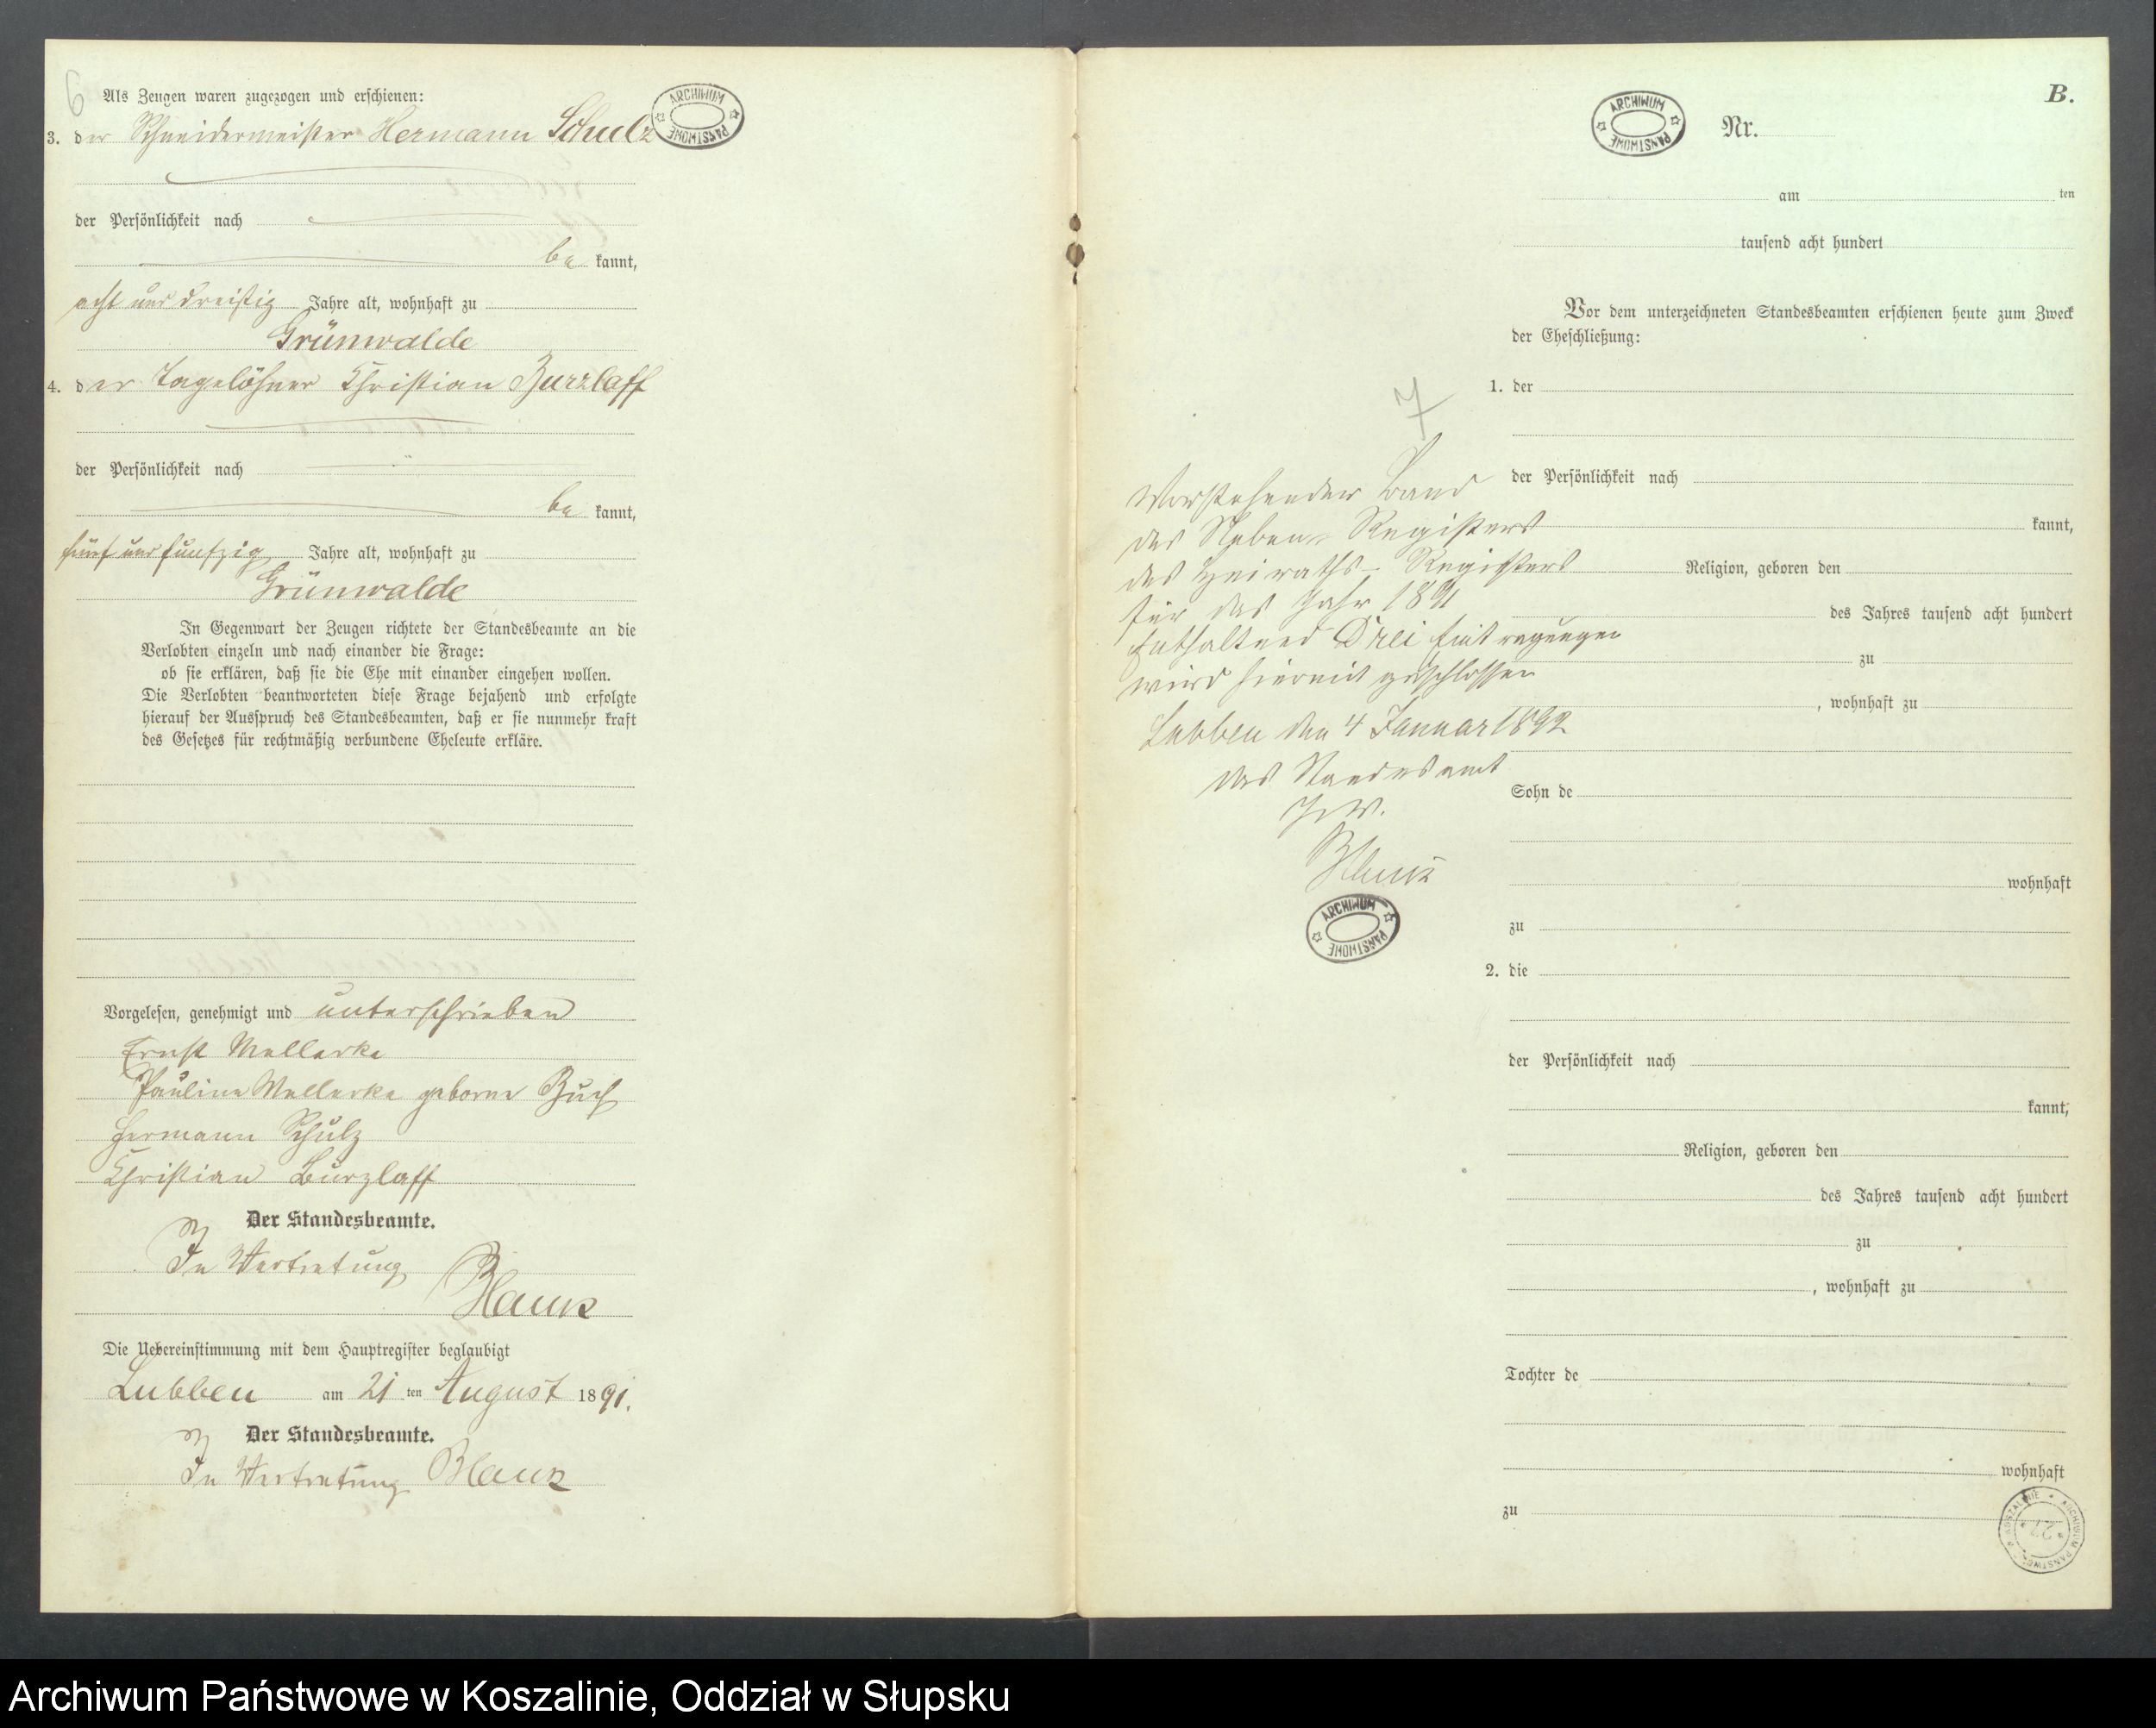 6
Als Zeugen waren zugezogen und erschienen:
3. der Schneidermeister Hermann Schulz
der Persönlichkeit nach
be kannt,
acht und dreißig Jahre alt, wohnhaft zu
Grünwalde
4. der Tagelöhner Christian Burzlaff
der Persönlichkeit nach
be kannt,
fünf und funfzig Jahre alt, wohnhaft zu
Grünwalde
In Gegenwart der Zeugen richtete der Standesbeamte an die
Verlobten einzeln und nach einander die Frage:
ob sie erklären, daß sie die Ehe mit einander eingehen wollen.
Die Verlobten beantworteten diese Frage bejahend und erfolgte
hierauf der Ausspruch des Standesbeamten, daß er sie nunmehr kraft
des Gesetzes für rechtmäßig verbundene Eheleute erkläre.
Vorgelesen, genehmigt und unterschrieben
Ernst Mellerke
Pauline Mellerke geborne Buch
Hermann Schulz
Christian Burzlaff
Der Standesbeamte.
In Vertretung
Blank
Die Uebereinstimmung mit dem Hauptregister beglaubigt
Lubben am 21 ten August 1891.
Der Standesbeamte.
In Vertretung Blank
ARCHIWUM PAŃSTWOWE
7
Vorstehender Band
des Neben-Registers
des Heiraths-Registers
für das Jahr 1891
enthaltend Drei Eintragungen
wird hiermit geschlossen
Lubben den 4 Januar 1892
Das Standesamt
J. V.
Blank
ARCHIWUM PAŃSTWOWE
B.
ARCHIWUM PAŃSTWOWE
Nr.
am ten
tausend acht hundert
Vor dem unterzeichneten Standesbeamten erschienen heute zum Zweck
der Eheschließung:
1. der
der Persönlichkeit nach
kannt,
Religion, geboren den
des Jahres tausend acht hundert
zu
, wohnhaft zu
Sohn de
wohnhaft
zu
2. die
der Persönlichkeit nach
kannt,
Religion, geboren den
des Jahres tausend acht hundert
zu
, wohnhaft zu
Tochter de
wohnhaft
zu
Archiwum Państwowe w Koszalinie, Oddział w Słupsku